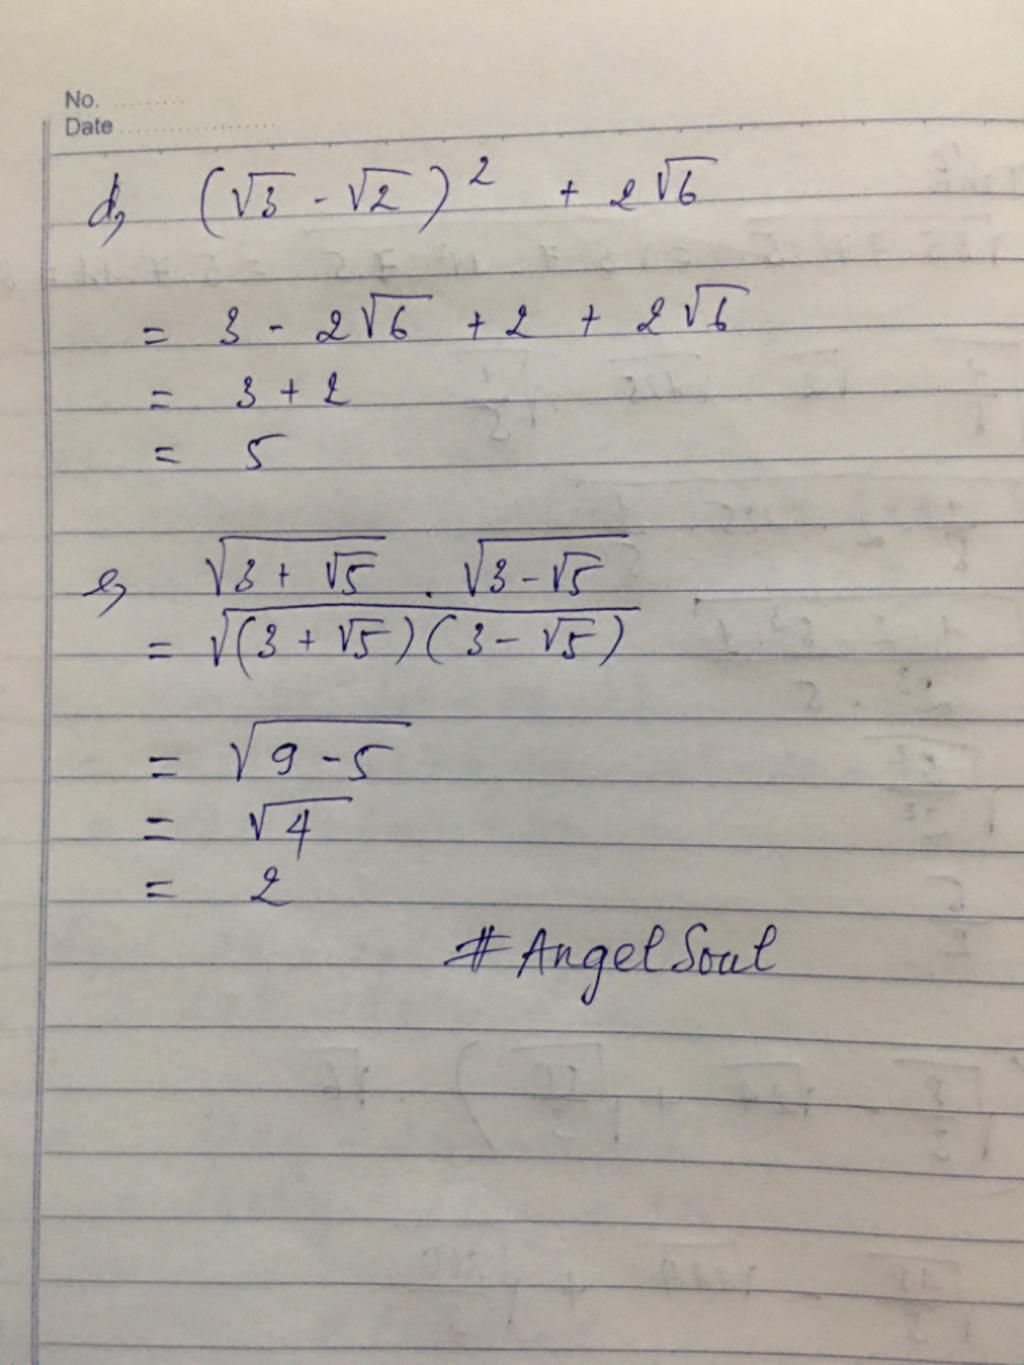 No. ..........
Date ....................
d, (√3 - √2)² + 2√6
= 3 - 2√6 + 2 + 2√6
= 3 + 2
= 5
e, √(3 + √5) . √(3 - √5)
= √((3 + √5)(3 - √5))
= √(9 - 5)
= √4
= 2
#AngelSoul